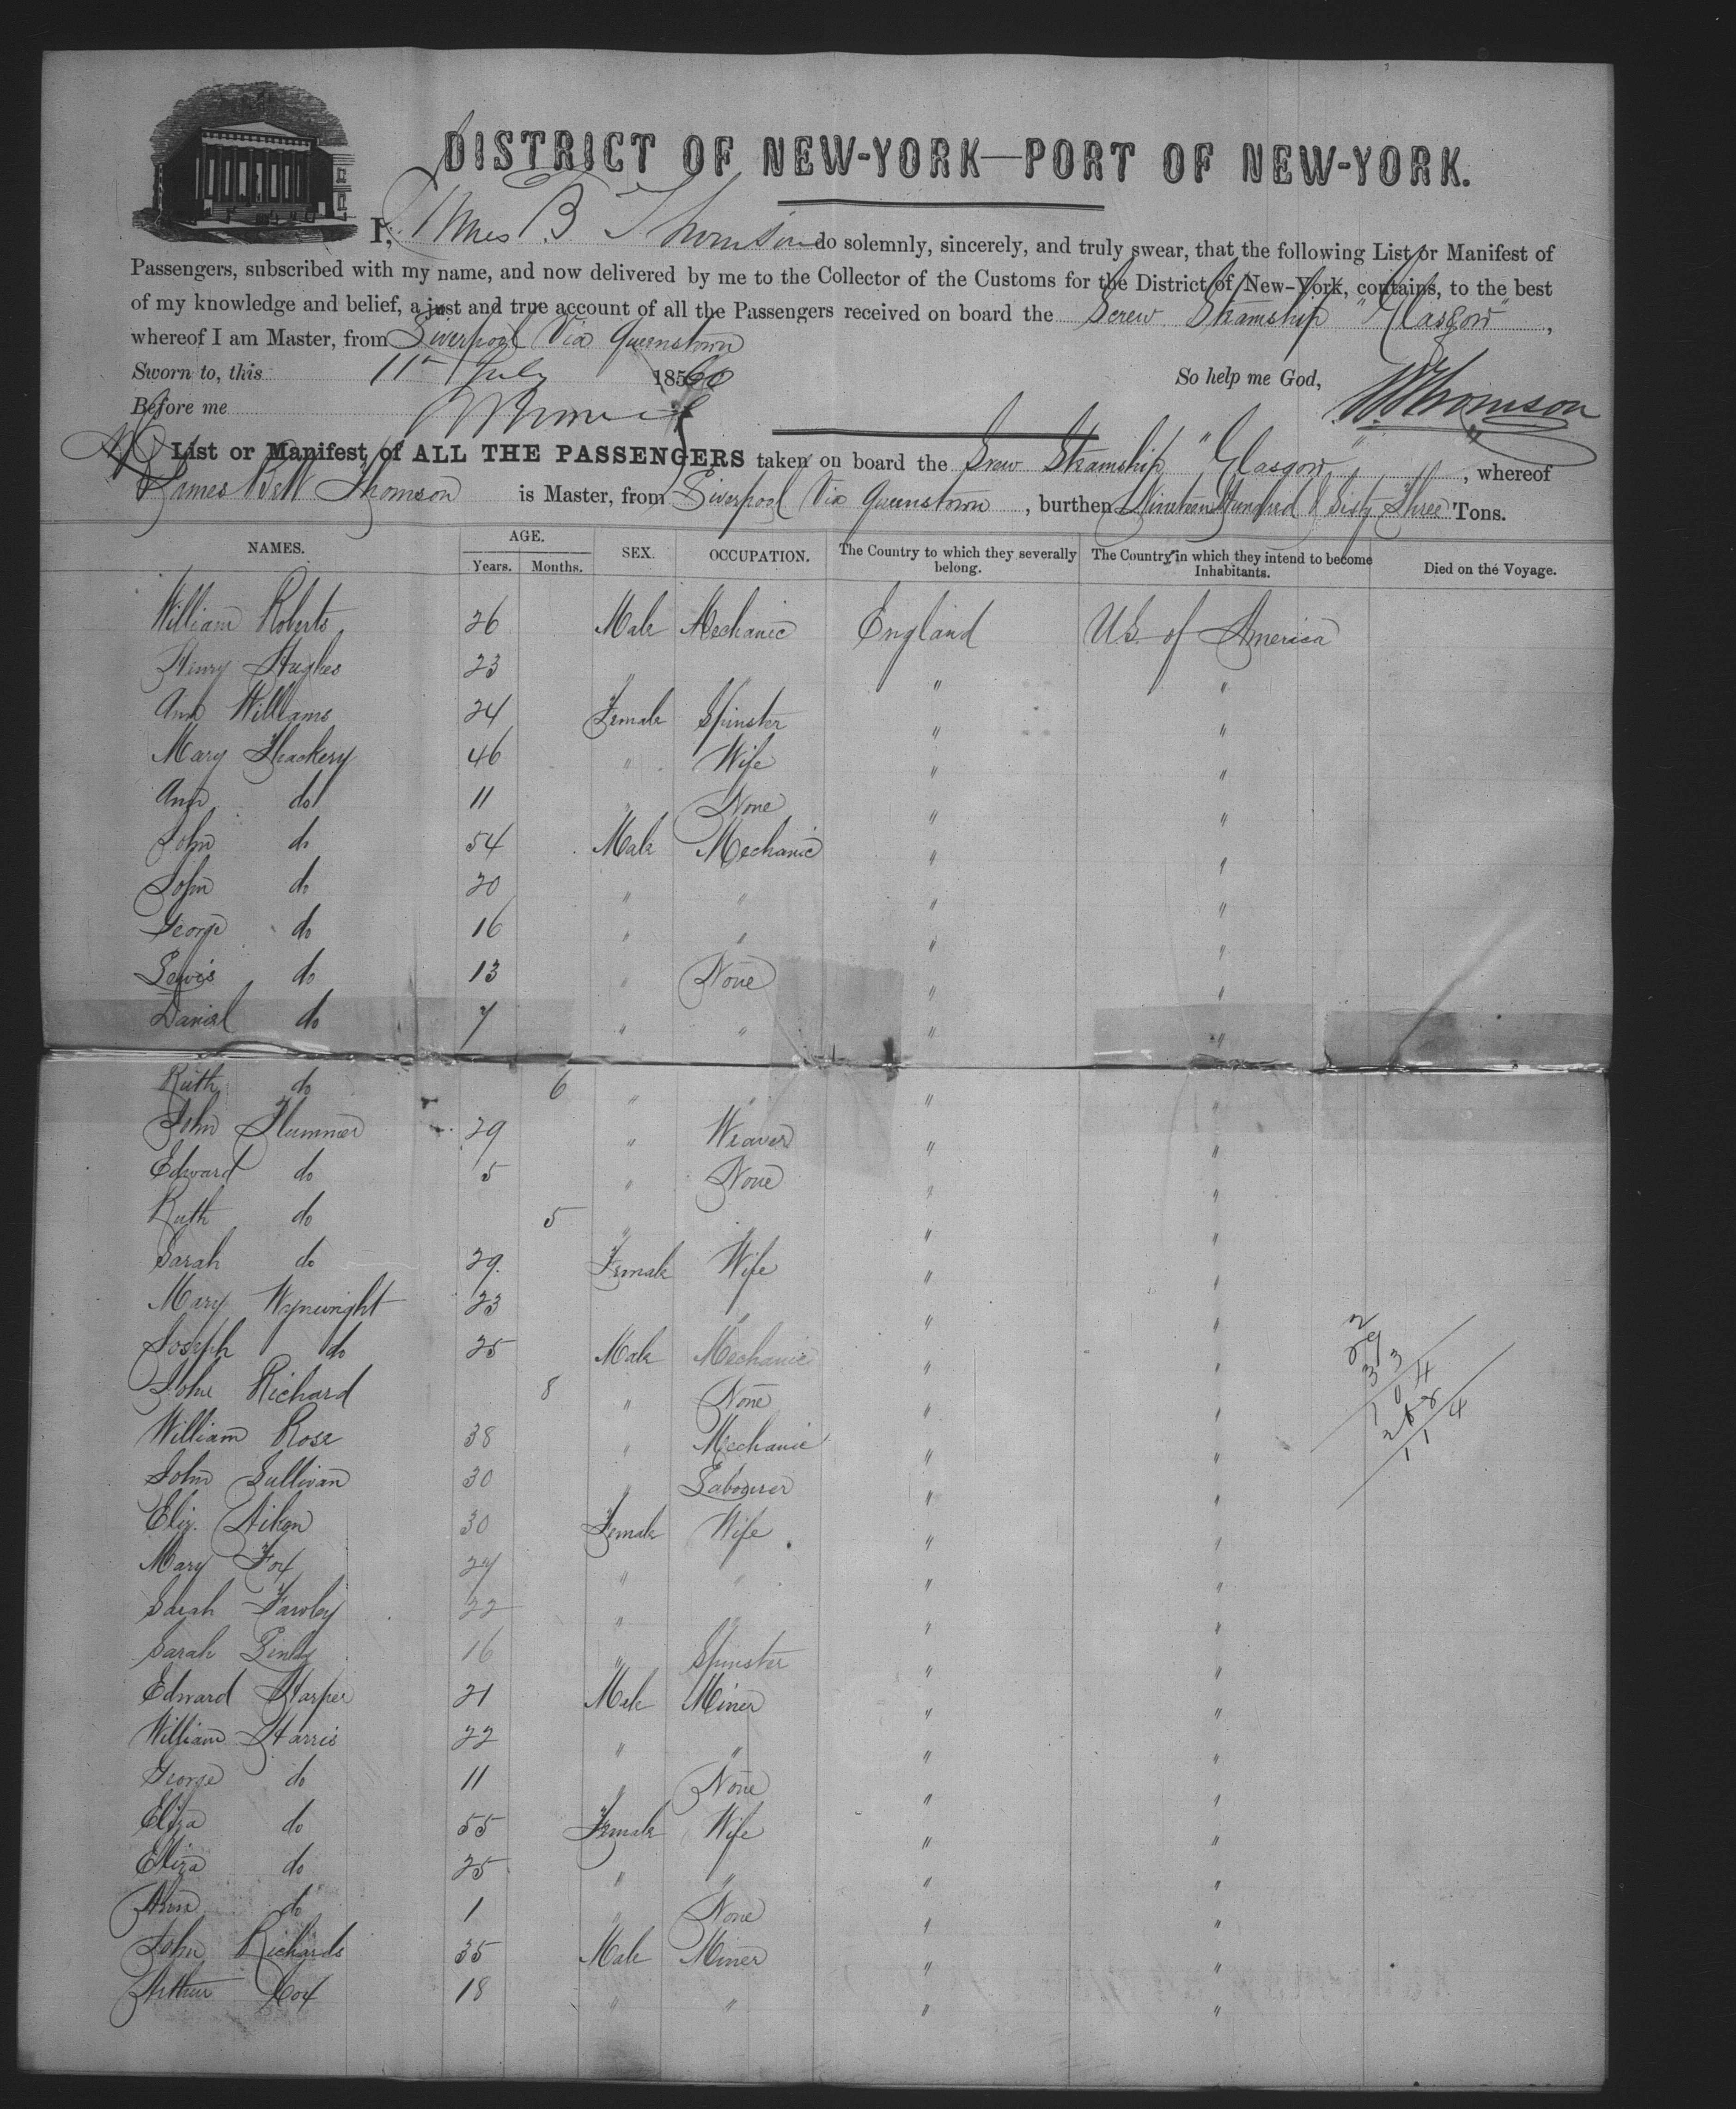 DISTRICT OF NEW-YORK—PORT OF NEW-YORK.
I, James B Thomson do solemnly, sincerely, and truly swear, that the following List or Manifest of
Passengers, subscribed with my name, and now delivered by me to the Collector of the Customs for the District of New-York, contains, to the best
of my knowledge and belief, a just and true account of all the Passengers received on board the Screw Steamship "Glasgow",
whereof I am Master, from Liverpool Via Queenstown
Sworn to, this 11th July 1860 So help me God, Thomson
Before me
List or Manifest of ALL THE PASSENGERS taken on board the Screw Steamship "Glasgow", whereof
James Bell Thomson is Master, from Liverpool Via Queenstown, burthen Nineteen Hundred & Sixty Three Tons.
NAMES. AGE. Years. Months. SEX. OCCUPATION. The Country to which they severally belong. The Country in which they intend to become Inhabitants. Died on the Voyage.
William Roberts 26 Male Mechanic England U.S. of America
Henry Hughes 23 " " "
Ann Williams 24 Female Spinster " "
Mary Thackery 46 " Wife " "
Ann do 11 " None " "
John do 54 Male Mechanic " "
John do 20 " " " "
George do 16 " " " "
Lewis do 13 " None " "
Daniel do 7 " " " "
Ruth do 6 " " " "
John Plummer 29 " Weaver " "
Edward do 5 " None " "
Ruth do 5 " " " "
Sarah do 29 Female Wife " "
Mary Wynwright 23 " " "
Joseph do 25 Male Mechanic " "
John Richard 8 " None " "
William Rose 38 " Mechanic " "
John Sullivan 30 " Labourer " "
Eliz. Aiken 30 Female Wife " "
Mary Fox 24 " " " "
Sarah Fawley 22 " " " "
Sarah 16 " Spinster " "
Edward Harper 21 Male Miner " "
William Harris 22 " " " "
George do 11 " None " "
Eliza do 55 Female Wife " "
Eliza do 25 " " " "
Ann do 1 " None " "
John Richards 35 Male Miner " "
Arthur Cox 18 " " " "